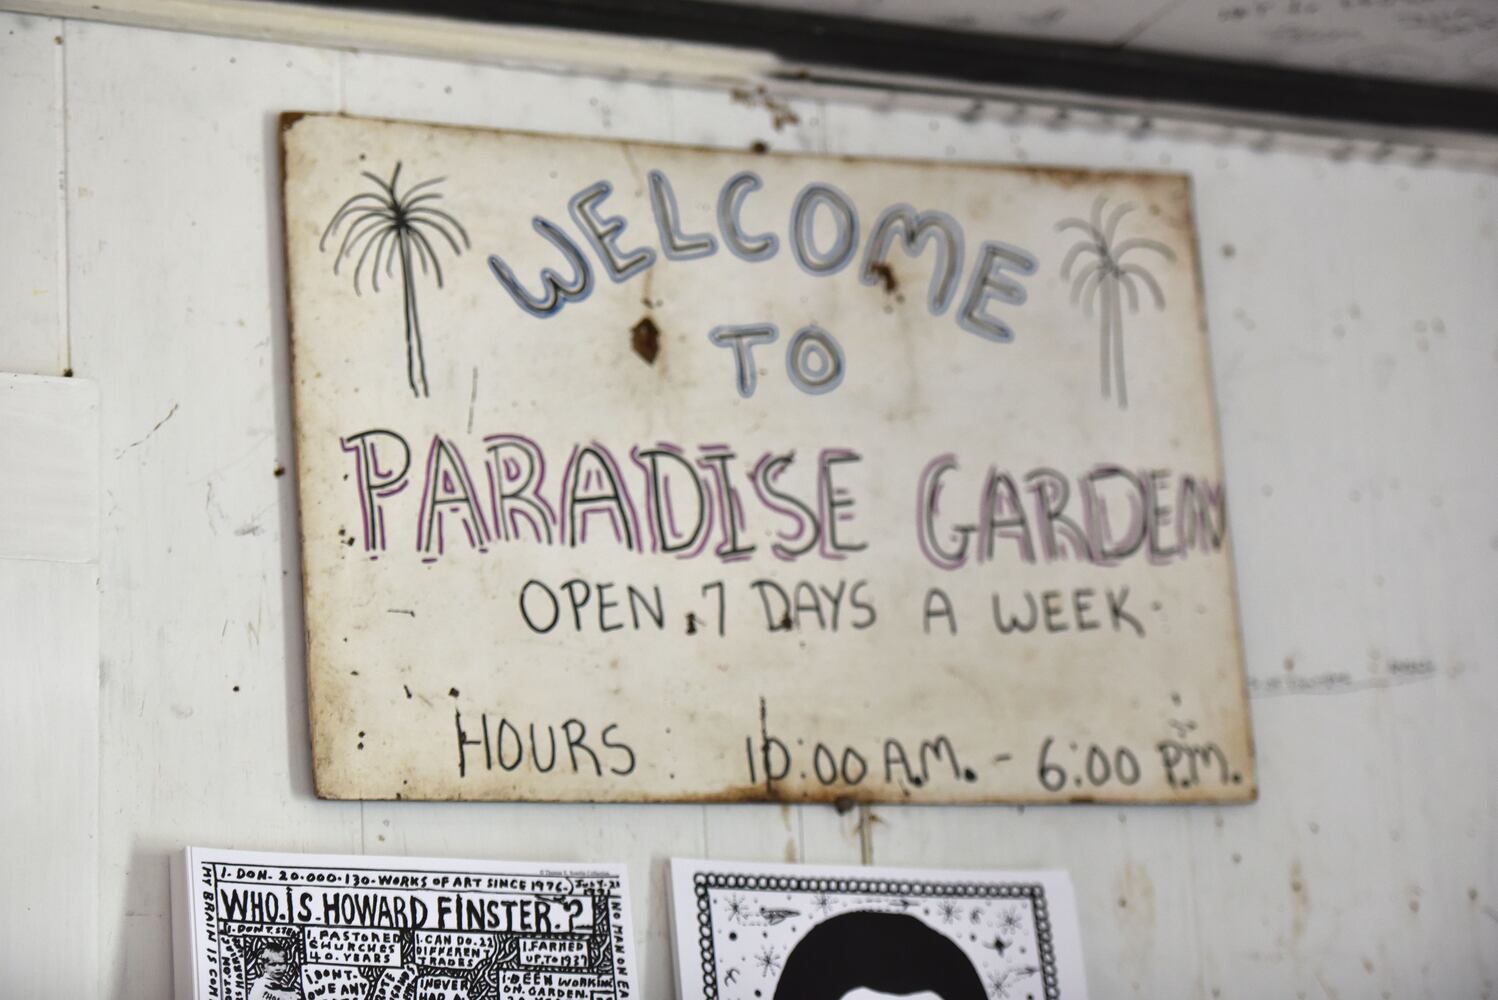 WELCOME
TO
PARADISE GARDEN
OPEN 7 DAYS A WEEK
HOURS 10:00 A.M. - 6:00 P.M.
I. DON. 20.000.130. WORKS OF ART SINCE 1976.
WHO.IS.HOWARD FINSTER.?
I. PASTORED
CHURCHES
40. YEARS
I. CAN DO. 22
DIFFERENT
TRADES
I. FARMED
UP. TO 1937
I. DONT.
OWE ANY
I NEVER
HAD A
I. BEEN WORKING
ON. GARDEN.
MY BRAIN IS
NO MAN ON